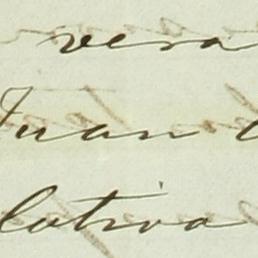 vera
Juan
lativa